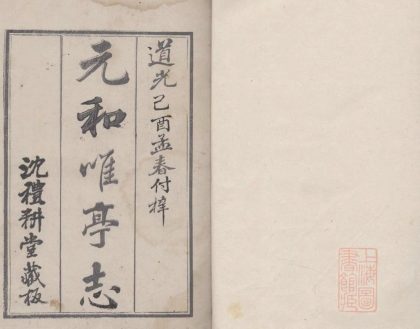 道光己酉孟春付梓
元和唯亭志
沈禮耕堂藏板
上海圖書館藏